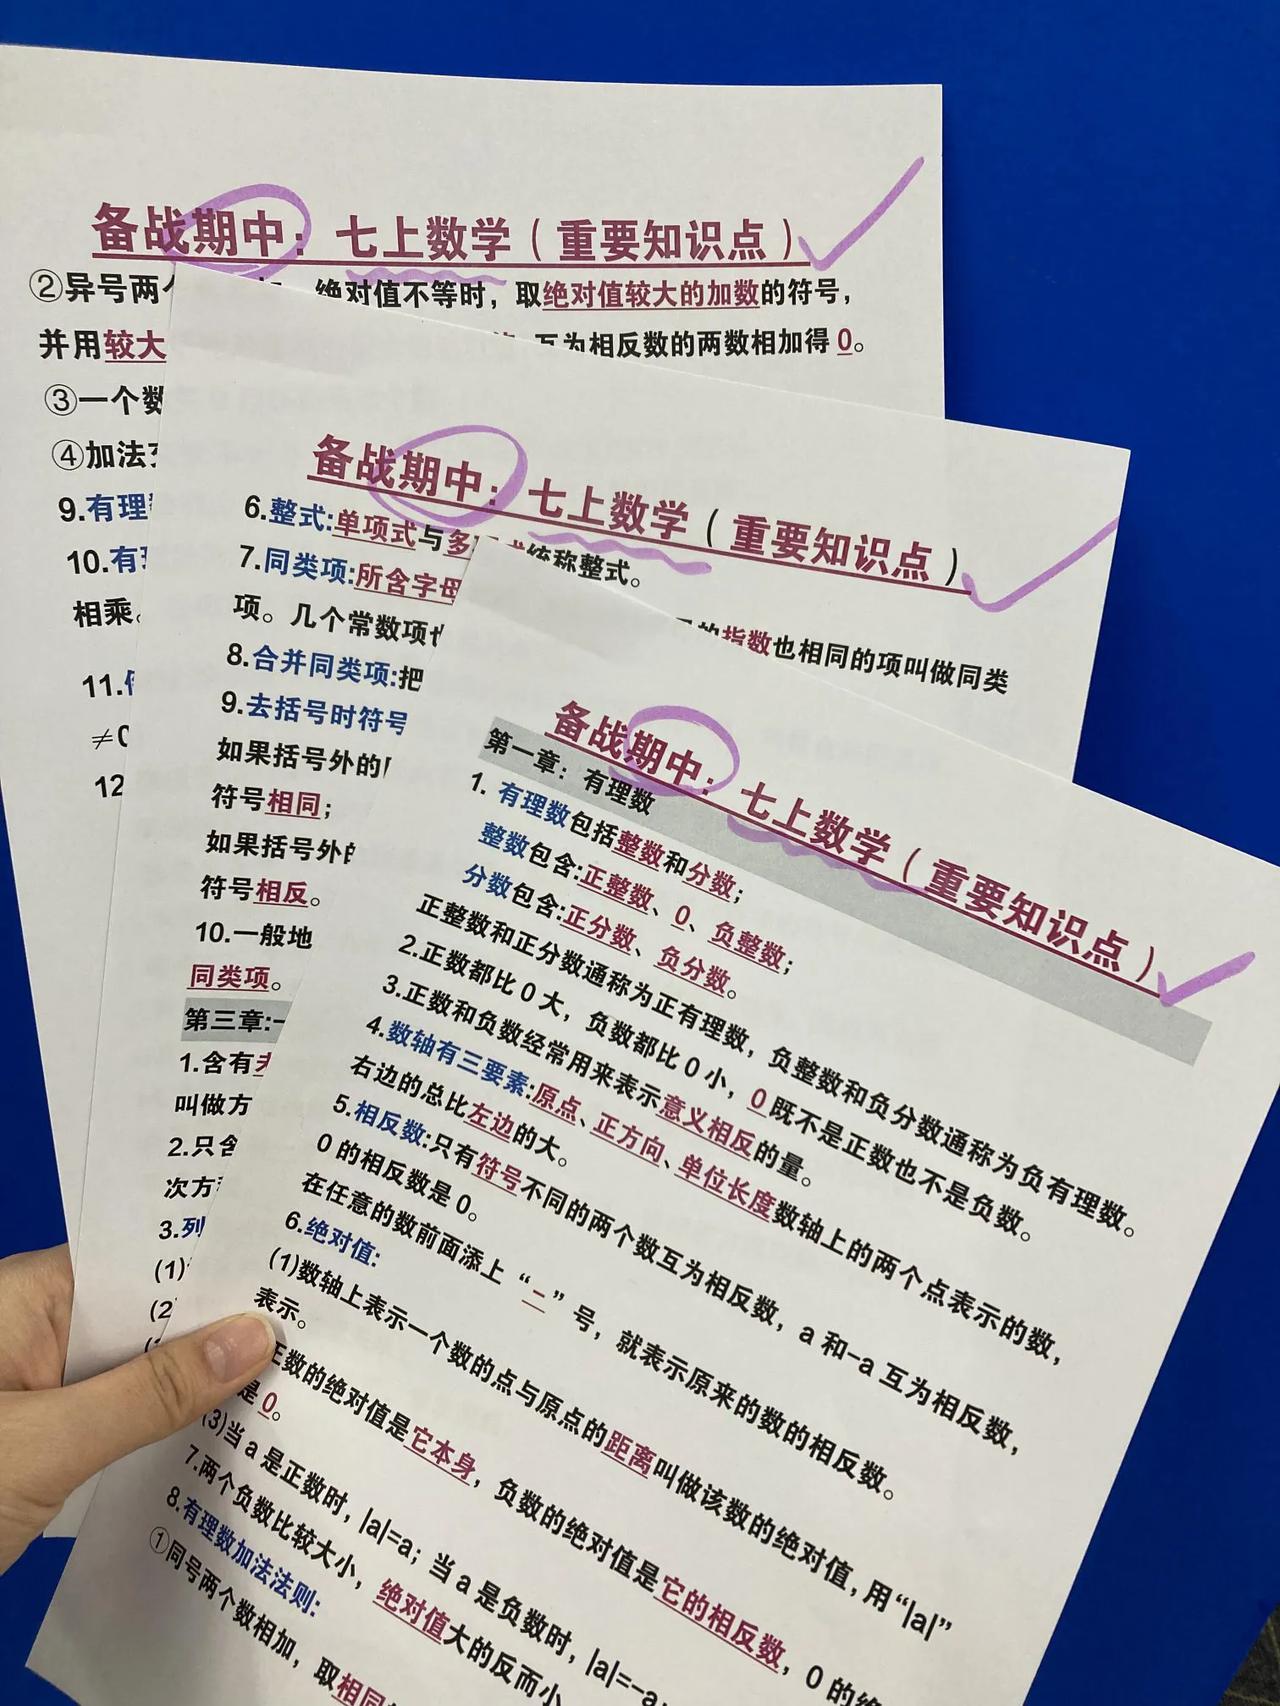 备战期中：七上数学（重要知识点）
②异号两个
绝对值不等时，取绝对值较大的加数的符号，
并用较大
互为相反数的两数相加得 0。
③一个数
④加法交
9.有理数
10.有理
相乘。
11.
≠0
12
备战期中：七上数学（重要知识点）
6.整式:单项式与多项式统称整式。
7.同类项:所含字母
的指数也相同的项叫做同类
项。几个常数项也
8.合并同类项:把
9.去括号时符号
如果括号外的
符号相同；
如果括号外的
符号相反。
10.一般地
同类项。
第三章:一
1.含有未
叫做方
2.只含
次方
3.列
(1)
(2)
备战期中：七上数学（重要知识点）
第一章：有理数
1. 有理数包括整数和分数；
整数包含:正整数、0、负整数；
分数包含:正分数、负分数。
正整数和正分数通称为正有理数，负整数和负分数通称为负有理数。
2.正数都比 0 大，负数都比 0 小，0 既不是正数也不是负数。
3.正数和负数经常用来表示意义相反的量。
4.数轴有三要素:原点、正方向、单位长度数轴上的两个点表示的数，
右边的总比左边的大。
5.相反数:只有符号不同的两个数互为相反数，a 和-a 互为相反数，
0 的相反数是 0。
在任意的数前面添上“-”号，就表示原来的数的相反数。
6.绝对值:
(1)数轴上表示一个数的点与原点的距离叫做该数的绝对值，用“|a|”
表示。
正数的绝对值是它本身，负数的绝对值是它的相反数，0 的绝
是 0。
(3)当 a 是正数时，|a|=a；当 a 是负数时，|a|=-a
7.两个负数比较大小，绝对值大的反而小
8.有理数加法法则:
①同号两个数相加，取相同